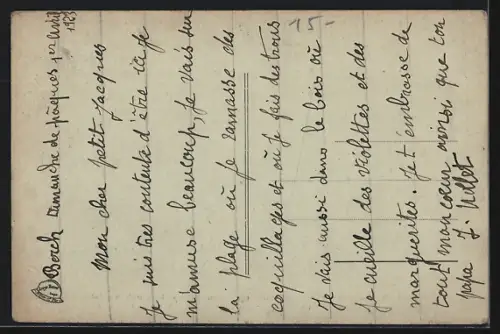 Berck Dimanche de pâques 1er avril
1923
Mon cher petit jacques
Je suis très contente d'être ici je
m'amuse beaucoup, je vais sur
la plage où je ramasse des
coquillages et où je fais des trous
Je vais aussi dans le bois où
je cueille des violettes et des
marguerites. je t'embrasse de
tout mon coeur ainsi que ton
papa J. Mollet
15-